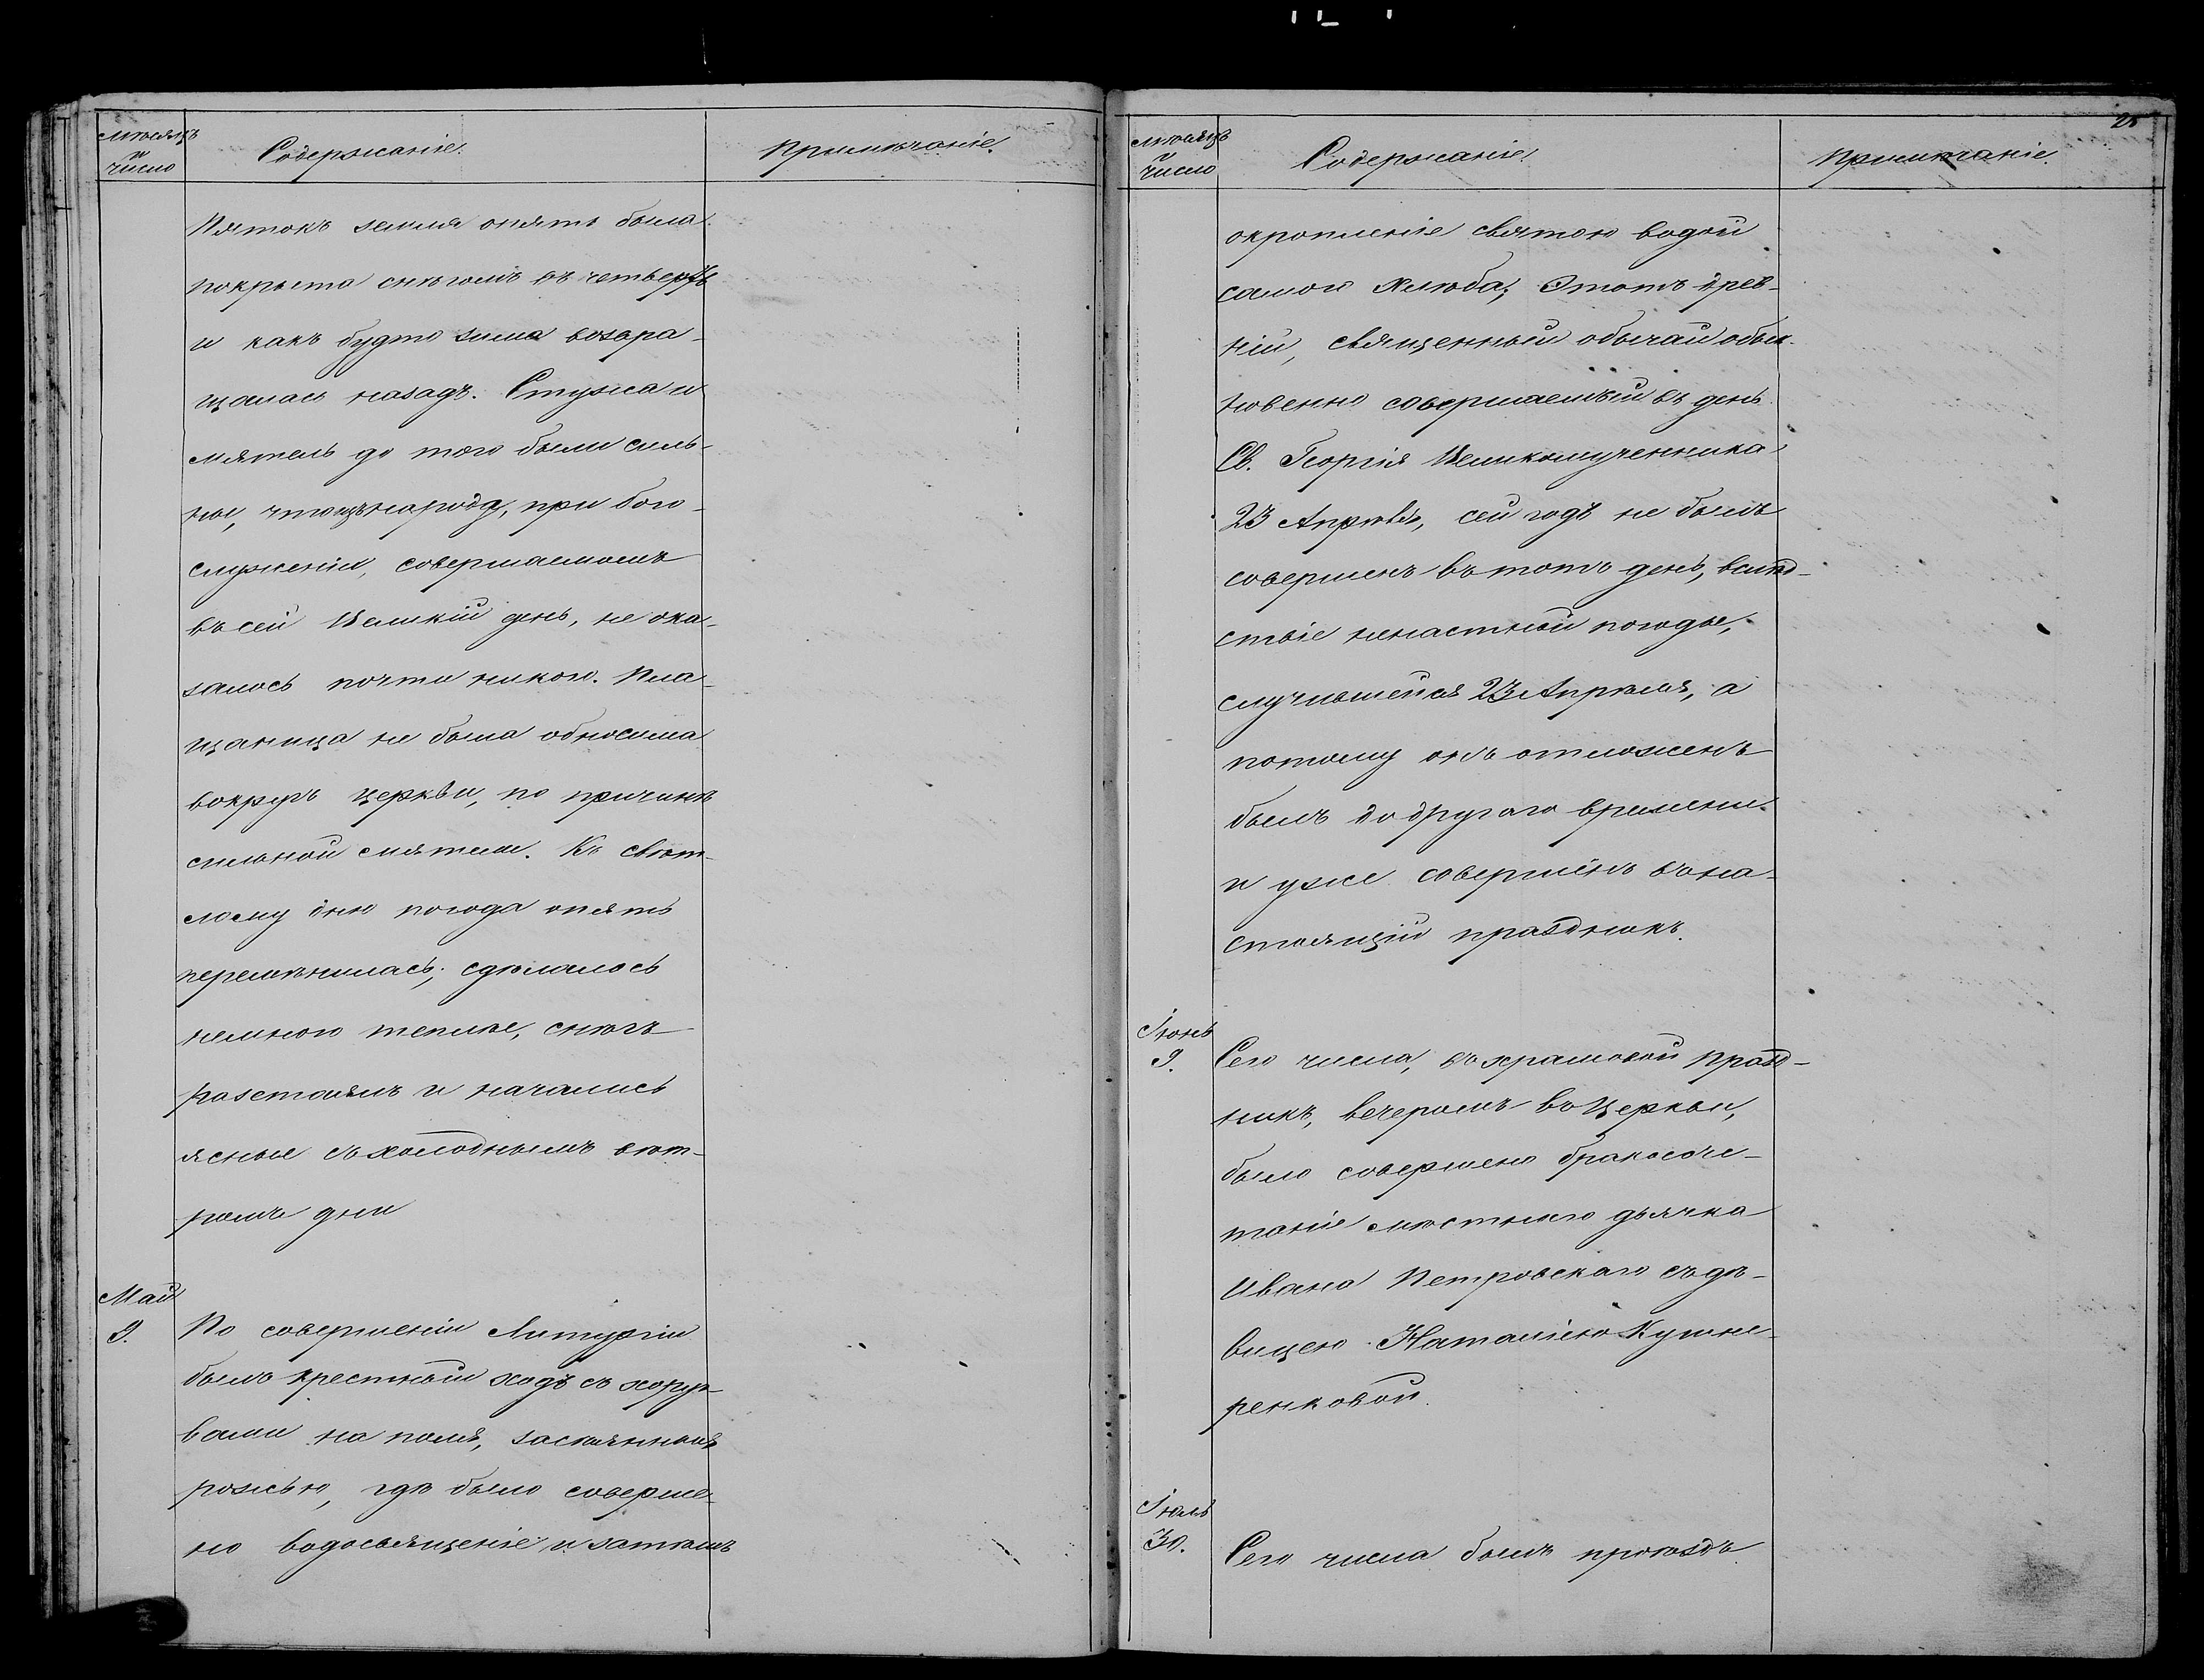 Мѣсяцъ
и
число
Содержаніе.
Примѣчаніе.
Пятокъ земля опять была
покрыта снѣгомъ въ четверть
и какъ будто зима возвра-
щалась назадъ. Стужа и
мятель до того были силь-
ны, что изъ народа, при бого-
служеніи, совершаемомъ
въ сей Великій день, не ока-
залось почти никого. Пла-
щаница не была обносима
вокругъ церкви, по причинѣ
сильной мятели. Къ свѣт-
лому дню погода опять
перемѣнилась; сдѣлалось
немного теплѣе, снѣгъ
разстаялъ и начались
ясные съ холоднымъ вѣт-
ромъ дни
Май
9.
По совершеніи Литургіи
былъ крестный ходъ съ хоруг-
вами на поля, засѣянныя
рожью, гдѣ было соверше-
но водосвященіе и затѣмъ
25
Мѣсяцъ
и
число
Содержаніе.
Примѣчаніе.
окропленіе святою водою
самого хлѣба; Этотъ древ-
ній, священный обычай обык-
новенно совершаемый въ день
Св. Георгія Великомученника
23 Апрѣля, сей годъ не былъ
совершенъ въ тотъ день, вслѣд-
ствіе ненастной погоды,
случившейся 23 Апрѣля, а
потому онъ отложенъ
былъ до другаго времени
и уже совершенъ въ на-
стоящій праздникъ.
Іюнь
9.
Сего числа, въ храмовой празд-
никъ, вечеромъ въ Церкви,
было совершено бракосоче-
таніе мѣстнаго дьячка
Ивана Петровскаго съ дѣ-
вицею Наталіею Кушне-
ренковой.
Іюль
30.
Сего числа былъ проѣздъ